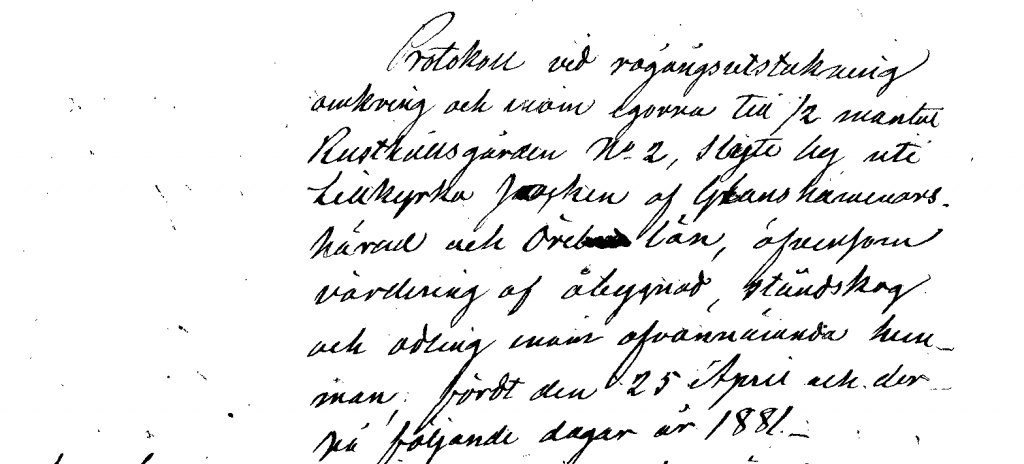 Protokoll vid rågångsutstakning
omkring och inom egorna till 1/2 mantal
Rusthållsgården No 2, Slyte by uti
Lillkyrka Socken af Glanshammars-
härad och Örebro län, äfvensom
värdering af åbygnad, ståndskog
och odling inom ofvannämnda hem-
man, fördt den 25 April och der-
på följande dagar år 1881.-